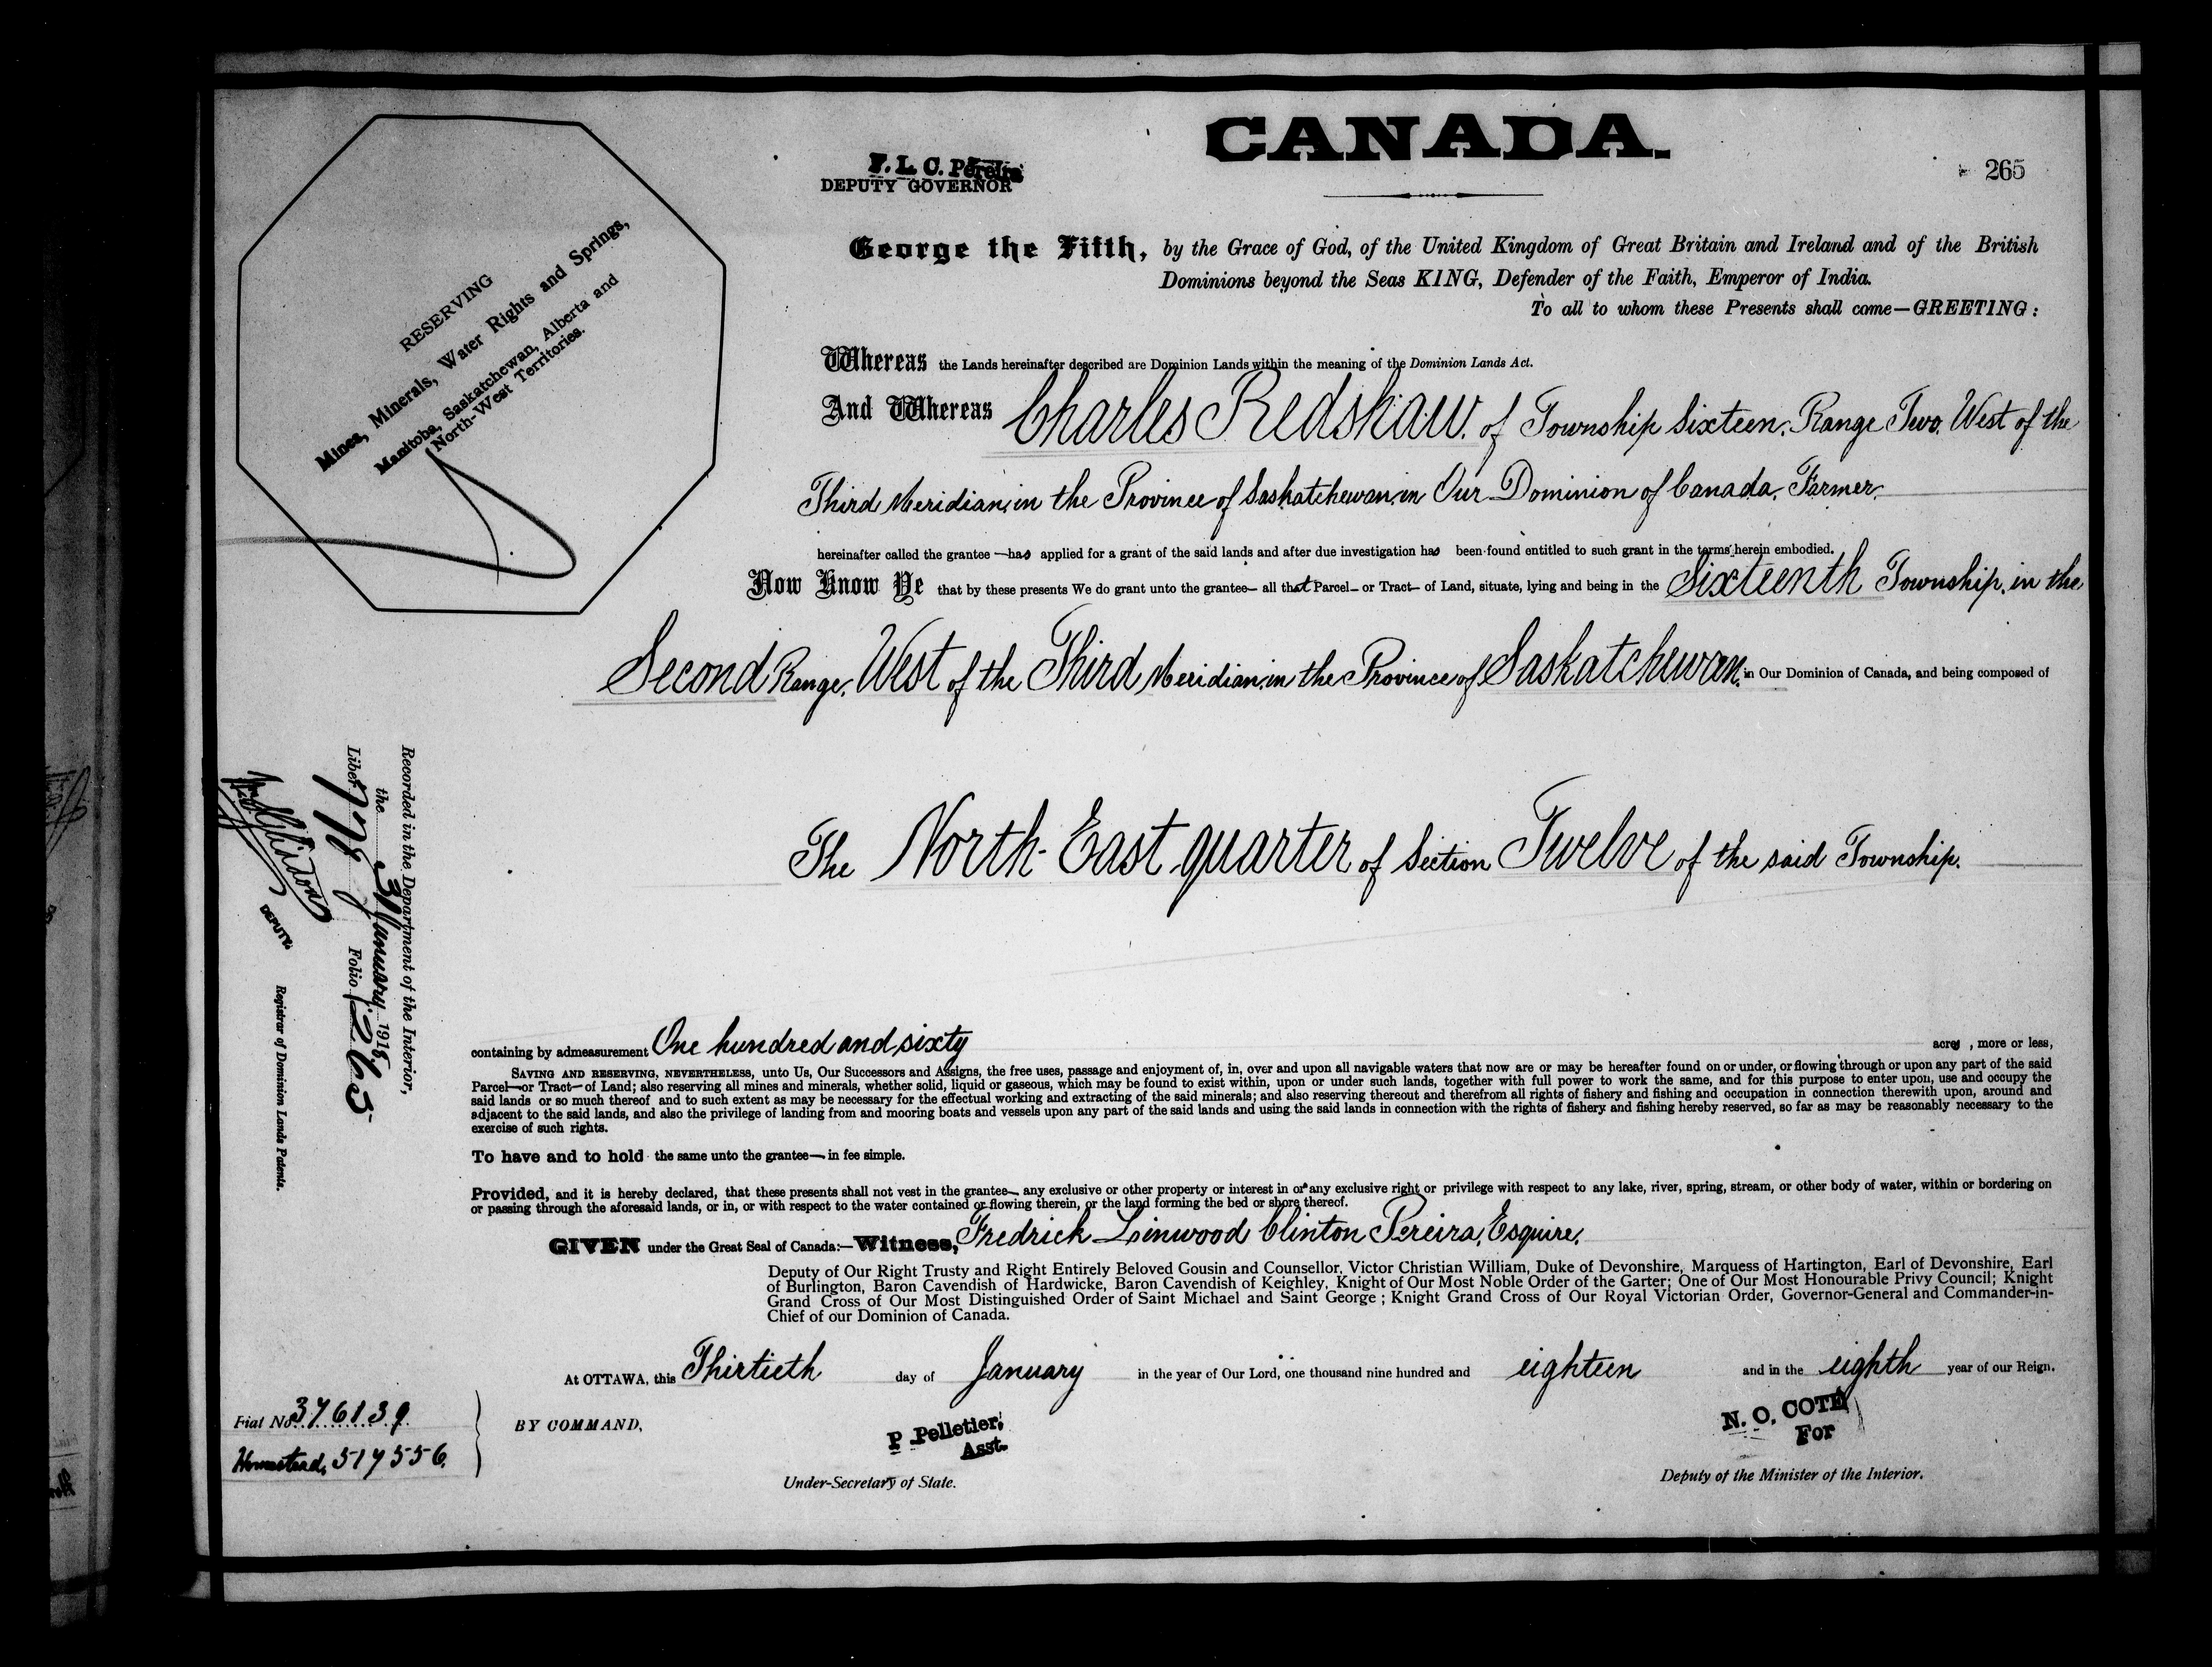 CANADA.
F. L. C. Pereira
DEPUTY GOVERNOR
265
RESERVING
Mines, Minerals, Water Rights and Springs,
Manitoba, Saskatchewan, Alberta and
North-West Territories.
George the Fifth, by the Grace of God, of the United Kingdom of Great Britain and Ireland and of the British
Dominions beyond the Seas KING, Defender of the Faith, Emperor of India.
To all to whom these Presents shall come—GREETING:
Whereas the Lands hereinafter described are Dominion Lands within the meaning of the Dominion Lands Act.
And Whereas Charles Redshaw. of Township Sixteen, Range Two, West of the
Third Meridian, in the Province of Saskatchewan, in Our Dominion of Canada, Farmer,
hereinafter called the grantee — has applied for a grant of the said lands and after due investigation has been found entitled to such grant in the terms herein embodied.
Now Know Ye that by these presents We do grant unto the grantee— all that Parcel— or Tract— of Land, situate, lying and being in the Sixteenth Township, in the
Second Range, West of the Third Meridian, in the Province of Saskatchewan, in Our Dominion of Canada, and being composed of
The North-East quarter of Section Twelve of the said Township.
containing by admeasurement One hundred and sixty acres, more or less,
SAVING AND RESERVING, NEVERTHELESS, unto Us, Our Successors and Assigns, the free uses, passage and enjoyment of, in, over and upon all navigable waters that now are or may be hereafter found on or under, or flowing through or upon any part of the said
Parcel—or Tract—of Land; also reserving all mines and minerals, whether solid, liquid or gaseous, which may be found to exist within, upon or under such lands, together with full power to work the same, and for this purpose to enter upon, use and occupy the
said lands or so much thereof and to such extent as may be necessary for the effectual working and extracting of the said minerals; and also reserving thereout and therefrom all rights of fishery and fishing and occupation in connection therewith upon, around and
adjacent to the said lands, and also the privilege of landing from and mooring boats and vessels upon any part of the said lands and using the said lands in connection with the rights of fishery and fishing hereby reserved, so far as may be reasonably necessary to the
exercise of such rights.
To have and to hold the same unto the grantee— in fee simple.
Provided, and it is hereby declared, that these presents shall not vest in the grantee— any exclusive or other property or interest in or any exclusive right or privilege with respect to any lake, river, spring, stream, or other body of water, within or bordering on
or passing through the aforesaid lands, or in, or with respect to the water contained or flowing therein, or the land forming the bed or shore thereof.
GIVEN under the Great Seal of Canada:—Witness, Fredrick Linwood Clinton Pereira, Esquire,
Deputy of Our Right Trusty and Right Entirely Beloved Gousin and Counsellor, Victor Christian William, Duke of Devonshire, Marquess of Hartington, Earl of Devonshire, Earl
of Burlington, Baron Cavendish of Hardwicke, Baron Cavendish of Keighley, Knight of Our Most Noble Order of the Garter; One of Our Most Honourable Privy Council; Knight
Grand Cross of Our Most Distinguished Order of Saint Michael and Saint George; Knight Grand Cross of Our Royal Victorian Order, Governor-General and Commander-in-
Chief of our Dominion of Canada.
At OTTAWA, this Thirtieth day of January in the year of Our Lord, one thousand nine hundred and eighteen and in the eighth year of our Reign.
BY COMMAND,
P Pelletier,
Asst.
Under-Secretary of State.
N. O. COTE
For
Deputy of the Minister of the Interior.
Fiat No. 376139
Homestead, 517556.
Recorded in the Department of the Interior,
the 31 January 1918
Liber 778 Folio 265
DEPUTY
Registrar of Dominion Lands Patents.